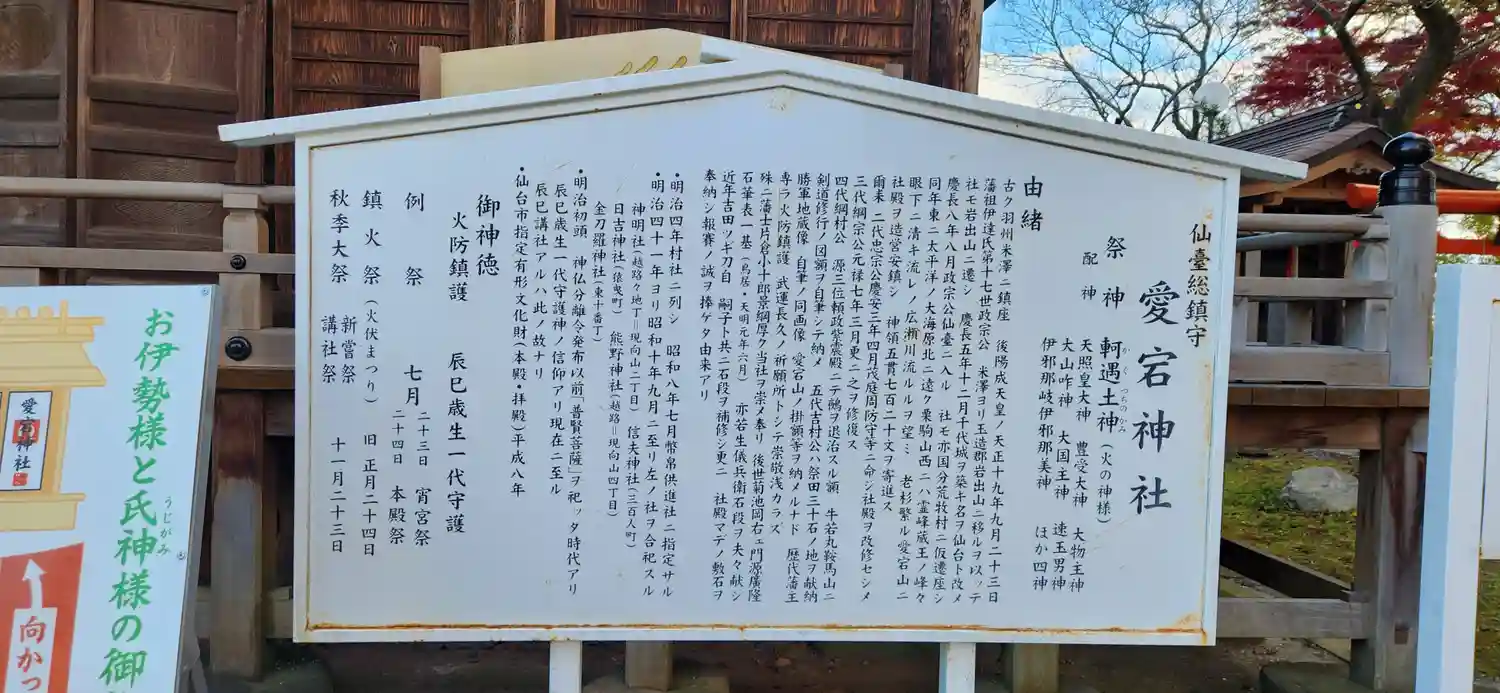 仙臺総鎮守
愛宕神社
祭神 軻遇土神(火の神様)
かぐつちのかみ
配神 天照皇大神 豊受大神 大物主神
大山咋神 大国主神 速玉男神
伊邪那岐伊邪那美神 ほか四神
由緒
古ク羽州米澤ニ鎮座 後陽成天皇ノ天正十九年九月二十三日
藩祖伊達氏第十七世政宗公 米澤ヨリ玉造郡岩出山ニ移ルヲ以ッテ
社モ岩出山ニ遷シ 慶長五年十二月千代城ヲ築キ名ヲ仙台ト改メ
慶長八年八月政宗公仙臺ニ入ルヤ 社モ亦国分荒牧村ニ仮遷座シ
同年東ニ太平洋ノ大海原北ニ遠ク栗駒山西ニハ霊峰蔵王ノ峰々
眼下ニ清キ流レノ広瀬川流ルルヲ望ミ 老杉繁ル愛宕山ニ
社殿ヲ造営安鎮シ 神領五貫七百二十文ヲ寄進ス
爾来 二代忠宗公慶安三年四月茂庭周防守等ニ命ジ社殿ヲ改修セシメ
三代綱宗公元禄七年三月更ニ之ヲ修復ス
四代綱村公 源三位頼政紫震殿ニ鵺ヲ退治スル額 牛若丸鞍馬山ニ
剣道修行ノ図額ヲ自筆シテ納メ 五代吉村公ハ祭田三十石ノ地ヲ献納
勝軍地蔵像 自筆ノ同画像 愛宕山ノ掛額等ヲ納メルナド 歴代藩主
専ラ火防鎮護 武運長久ノ祈願所トシテ崇敬浅カラズ
殊ニ藩士片倉小十郎景綱厚ク当社ヲ崇メ奉リ 後世菊池岡右ェ門源廣隆
石華表一基(鳥居・天明元年六月) 亦若生儀兵衛石段ヲ夫々献ジ
近年吉田ツギ刀自 嗣子ト共ニ石段ヲ補修シ更ニ 社殿マデノ敷石ヲ
奉納シ報賽ノ誠ヲ捧ゲタ由来アリ
・明治四年村社ニ列シ 昭和八年七月幣帛供進社ニ指定サル
・明治四十一年ヨリ昭和十年九月ニ至リ左ノ社ヲ合祀スル
神明社(越路々地丁=現向山二丁目) 信夫神社(三百人町)
日吉神社(猿曳町) 熊野神社(越路=現向山四丁目)
金刀羅神社(東十番丁)
・明治初頭 神仏分離令発布以前「普賢菩薩」ヲ祀ッタ時代アリ
辰巳歳生一代守護神ノ信仰アリ現在ニ至ル
辰巳講社アルハ此ノ故ナリ
・仙台市指定有形文化財(本殿・拝殿)平成八年
御神徳
火防鎮護 辰巳歳生一代守護
例祭 七月二十三日 宵宮祭
二十四日 本殿祭
鎮火祭(火伏まつり) 旧正月二十四日
秋季大祭 新嘗祭 十一月二十三日
講社祭
お伊勢様と氏神様の御
うじがみ
愛宕神社
向かっ